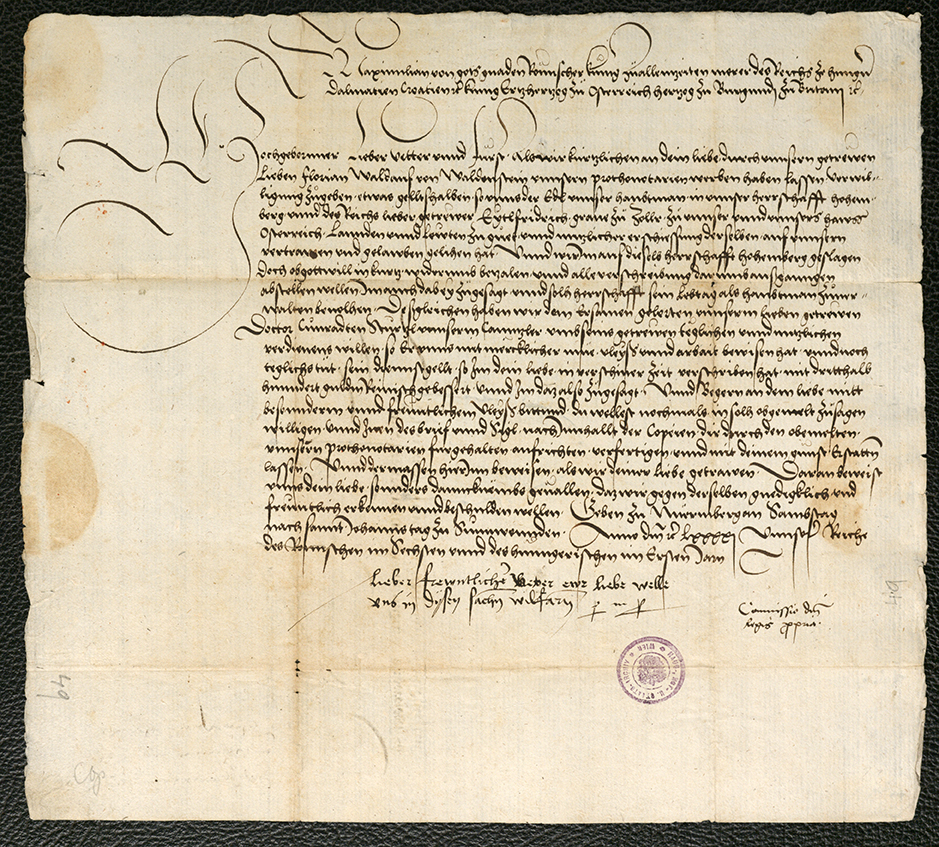 Maximilian von gots gnaden Römischer kunig zu allenntzeiten merer des Reichs zu hungern
Dalmatien Croatien etc kunig Ertzhertzog zu Osterreich hertzog zu Burgundj zu Britanj etc
Hochgebornner lieber vetter vnnd Fürst Als wir kurtzlichen an dein liebe durch vnnsern getrewen
lieben Florian Waldauf von Waldenstein vnnsern prothonotarien werben haben lassen Verwil-
ligung zugeben etwas gelltshalben so vnns der Edl vnnser haubtman in vnnser herrschafft hohem-
berg vnnd des Reichs lieber getrewer Eytlfridrich graue zu Zolrr zu vnnser vnnd vnnsers hawss
Osterreich Lannden vnnd lewten zu guet vnnd nutzlicher erschiessung derselben auf vnnsern
vertrawen vnd gelawben gelihen hat Vnnd wir Im auf dieselb herrschafft hohemberg geslagen
doch ob got will in kurtz widerumb betzalen vnnd alle verschreibung darumb ausganngen
abstellen wellen Im auch dabey zugesagt vnnd solh herrschafft sein lebtag als haubtman zuuer-
walten beuolhen Desgleichen haben wir dem Ersamen gelerten vnnserm lieben getrewen
Doctor Cunradten Sturtzl vnnserm Canntzler vmb seins getrewen teglichen vnnd nutzlichen
verdienens willen so Er vnns mit mercklicher müe vleyss vnnd arbait bewisen hat vnnd noch
teglichs tut sein diennstgellt so Im dein liebe in verschiner zeit verschriben hat mit dritthalb
hundert guldin Reinisch gebessert vnnd Im daz also zugesagt Vnnd begern an dein liebe mit
besonnderm vnnd freuntlichem vleyss bittund du wellest nochmals in solh obgemelt zusagen
willigen vnnd Inen des brief vnnd Sigl nach innhallt der Copeien dir durch den obemelten
vnnsern prothonotarien furgehalten aufrichten verfertigen vnnd mit deinem gunst Erstatten
lassen Vnnd dermassen hierinn beweisen als wir deiner liebe getrawen Daran beweist
vnns dein liebe sonnders dannckneme geuallen daz wir gegen derselben gnedigklich vnd
freuntlich erkennen vnd beschulden wellen Geben zu Nüremberg an Sambstag
nach sannt Johannstag zu Sunnwennden Anno dni etc lxxxxj Vnnser Reiche
des Römischen im Sechsen vnnd des hunngerischen im Ersten Jarn
lieber freuntlicher veter ewr liebe welle
vns in dysen sachen wilfarn
p m p
Commissio dni
Regis ppria
64
Cop